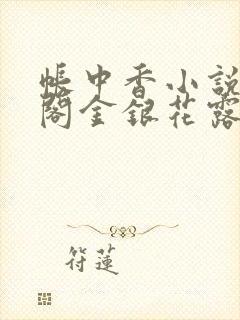 帳中香小說
閣金銀花露
符蓮